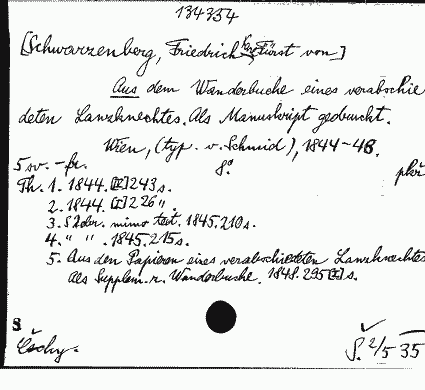 134354
[Schwarzenberg, Friedrich Fürst von]
Aus dem Wanderbuche eines verabschie
deten Lanzknechtes. Als Manuskript gedruckt.
Wien, (typ. v. Schmid), 1844-48.
5 sv. - fr. 8°. pkř
Th. 1. 1844. [II] 243 s.
2. 1844. [I] 226 ".
3. S 2 dor. mimo text. 1845. 210 s.
4. " " . 1845. 215 s.
5. Aus den Papieren eines verabschiedeten Lanzknechtes
als Supplem. z. Wanderbuche. 1848. 295 s.
S
Čechy. S. 2/5 35